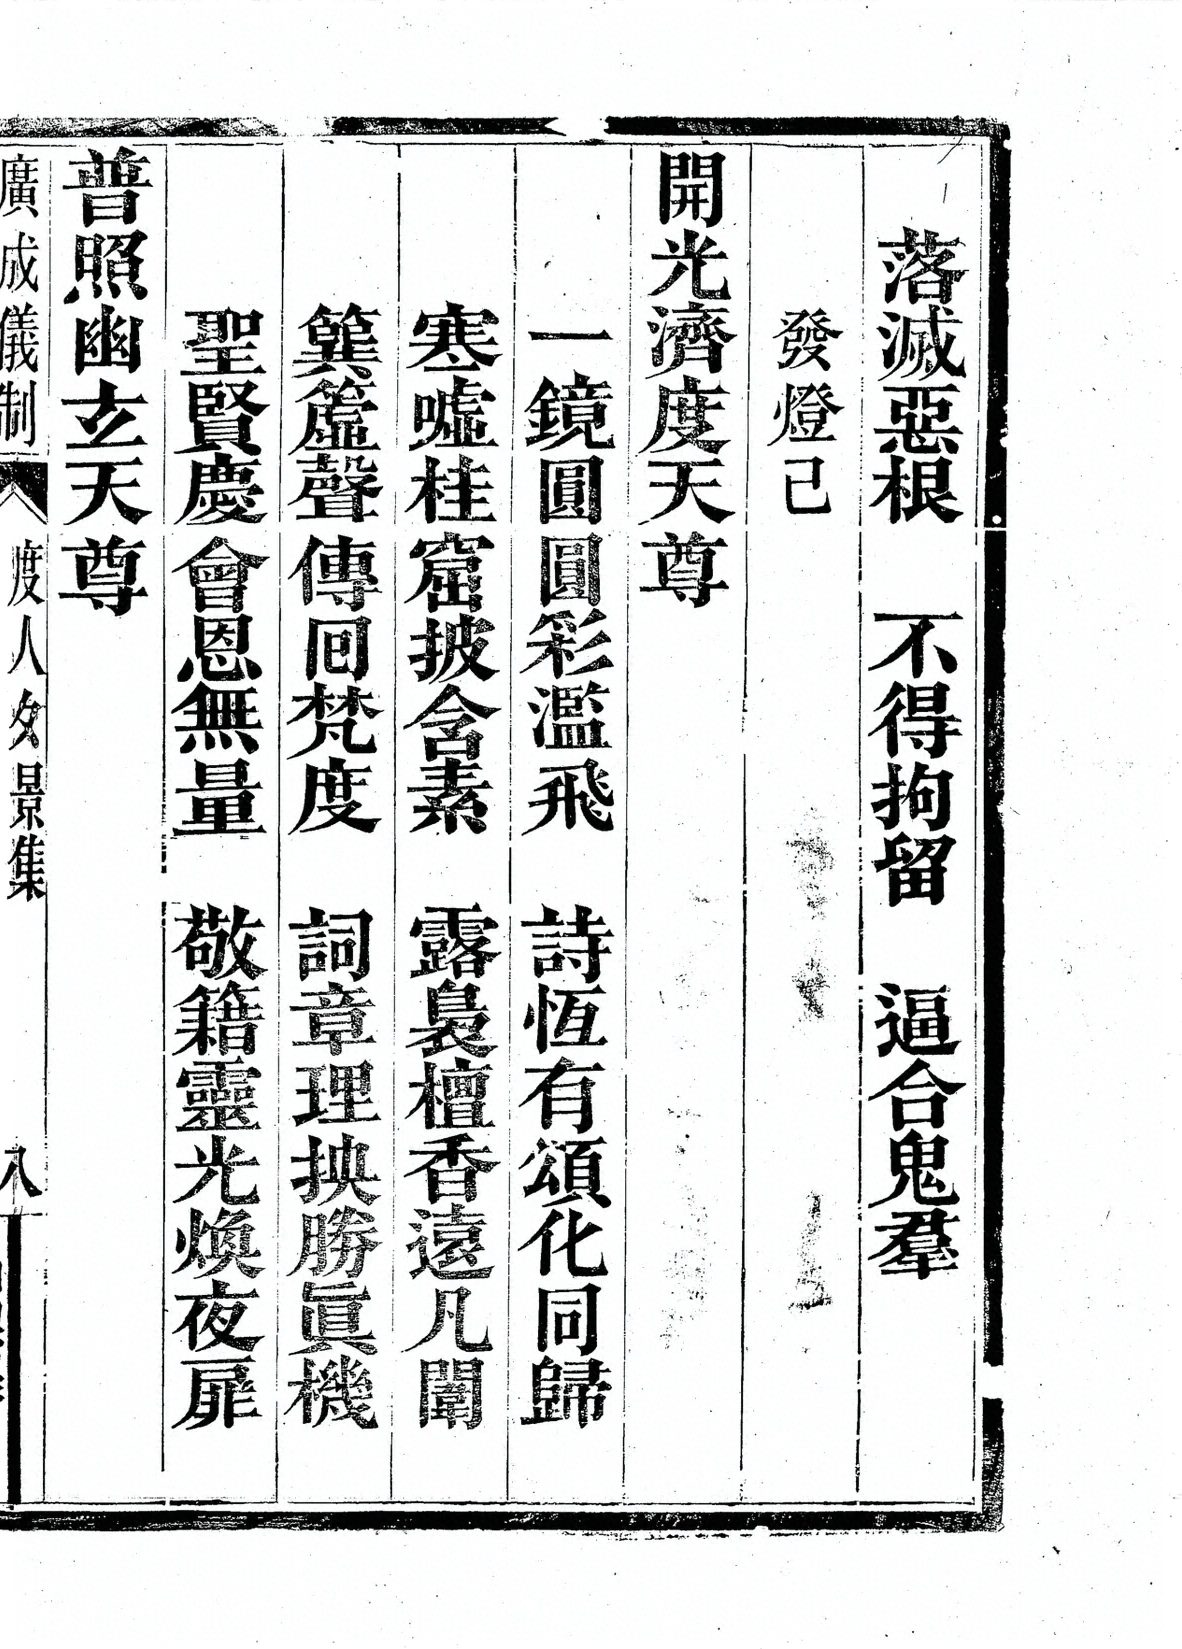 落滅惡根　不得拘留　逼合鬼羣
發燈已
開光濟度天尊
一鏡圓圓彩灩飛　詩恆有頌化同歸
寒噓桂窟披含素　露裊檀香遠凡闈
簨簴聲傳回梵度　詞章理抰勝眞機
聖賢慶會恩無量　敬籍靈光煥夜扉
普照幽玄天尊
廣成儀制　度人　景集　八